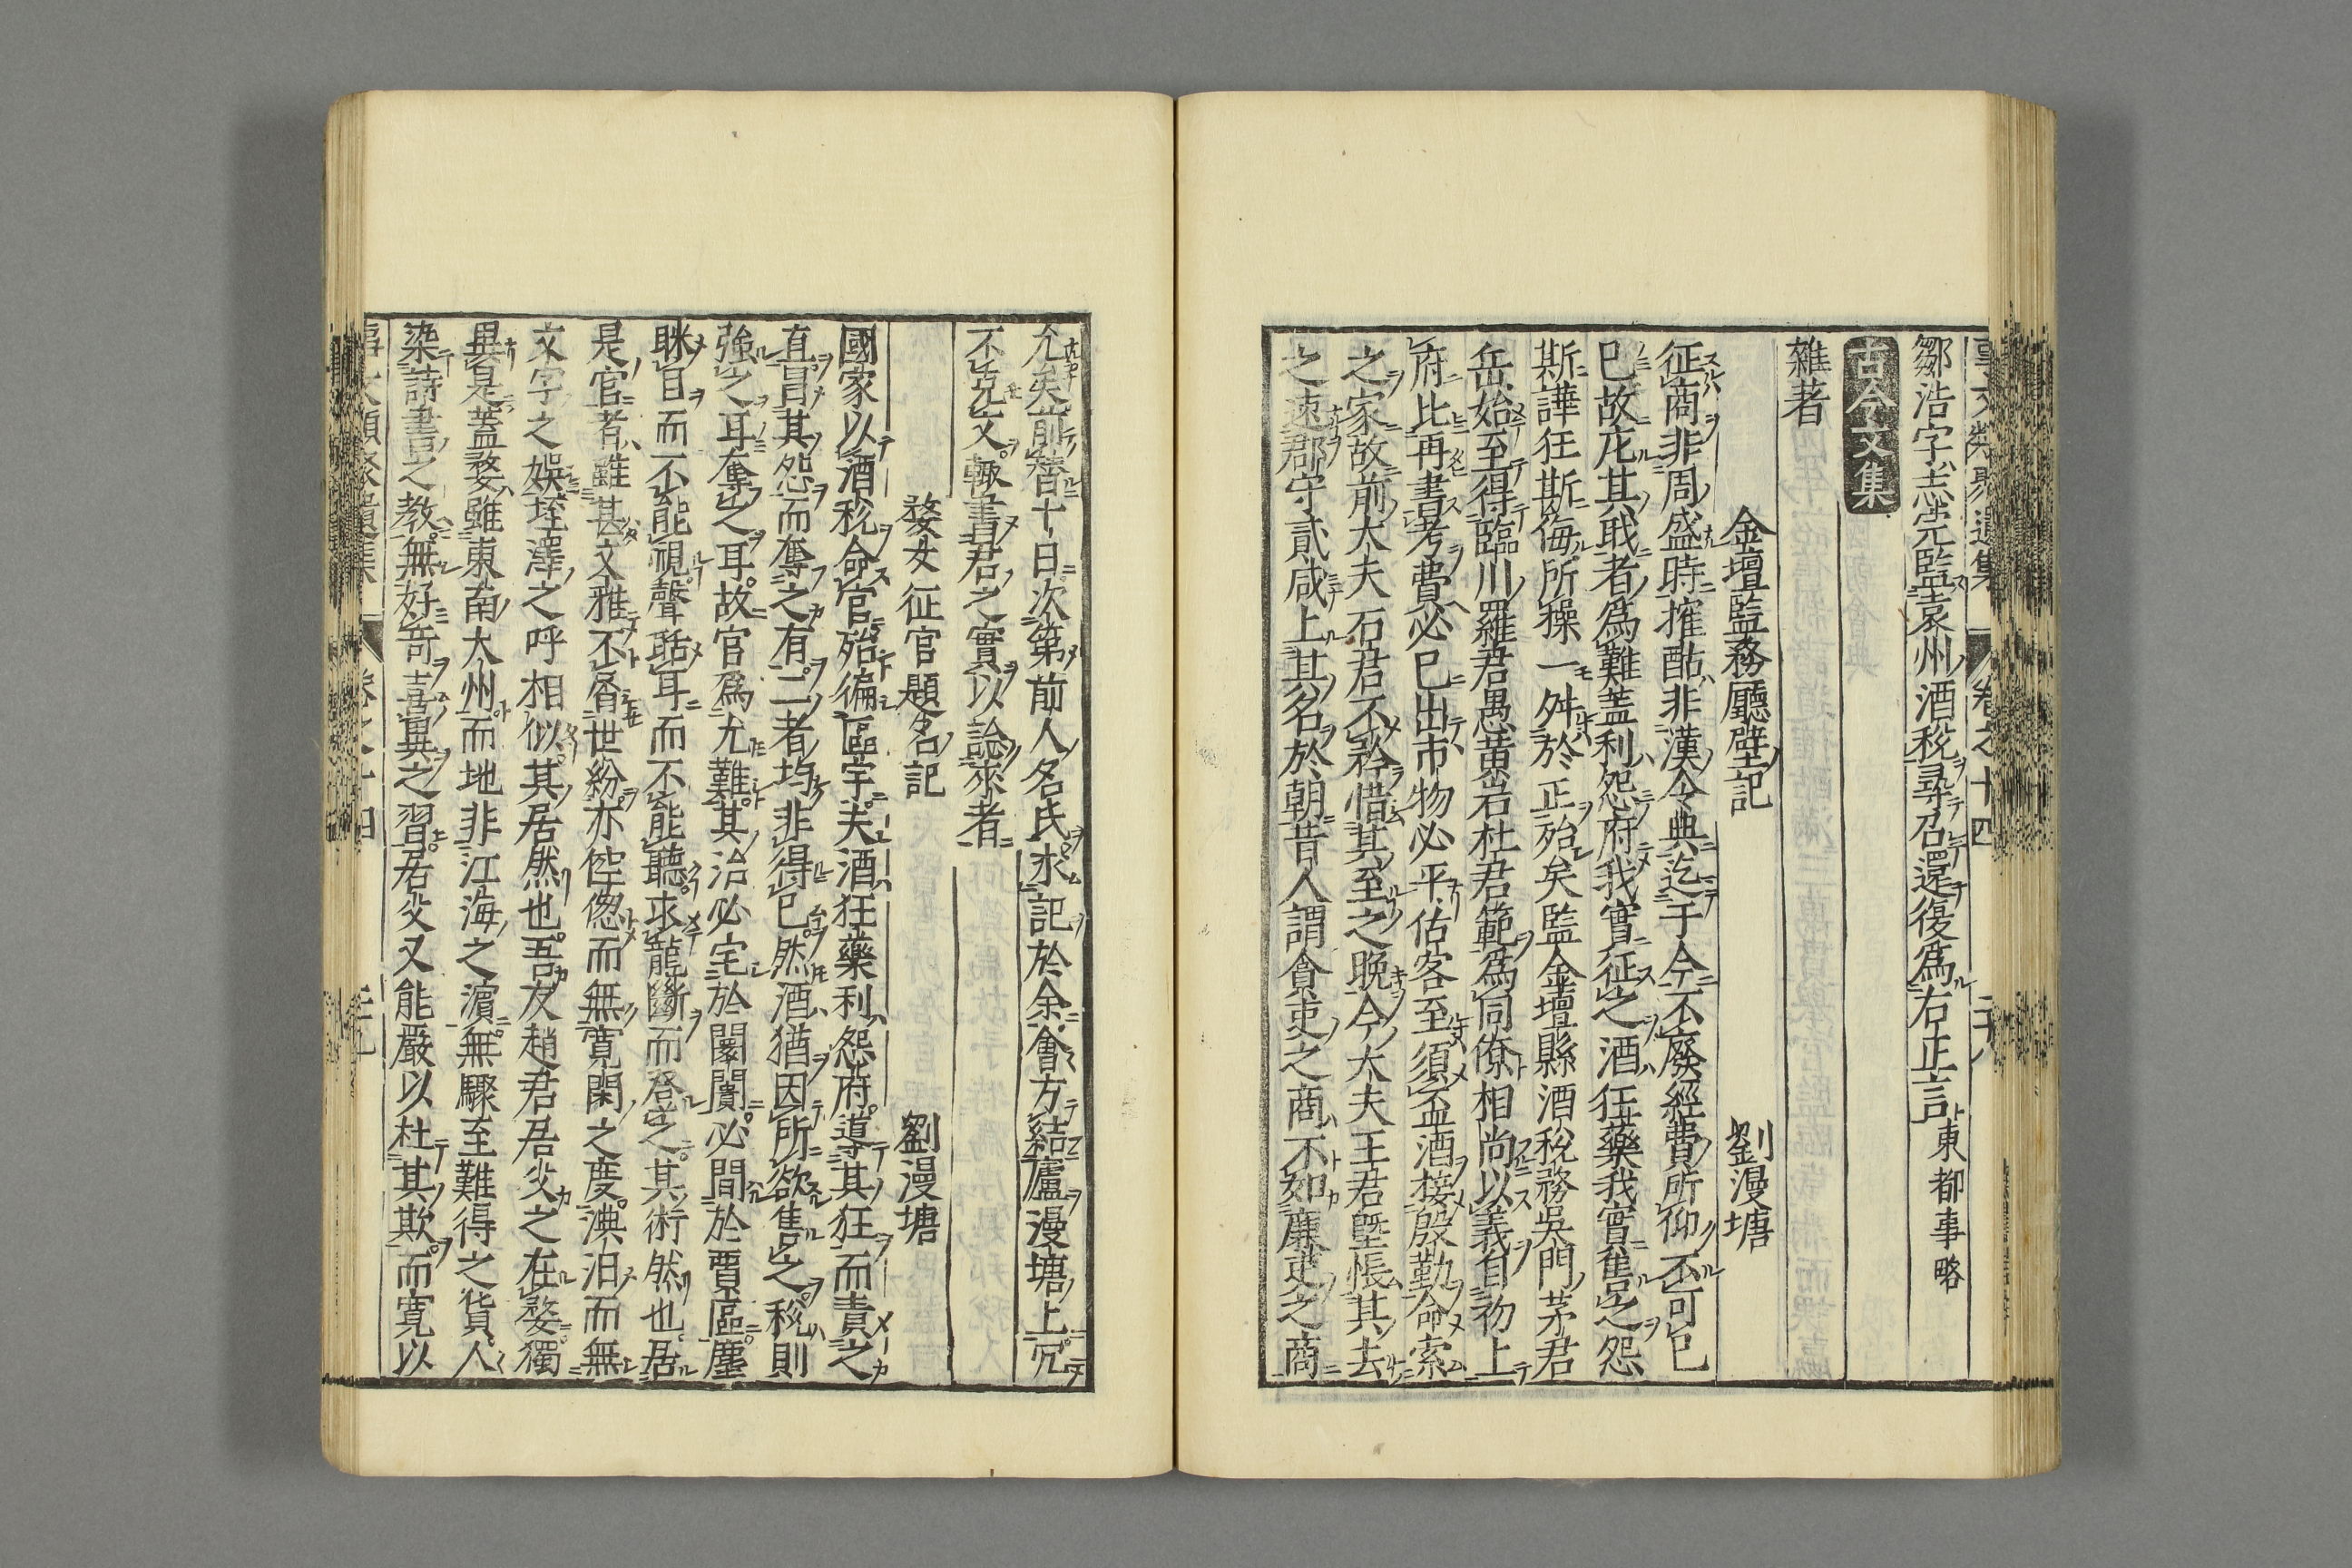 鄒浩字志完監袁州酒稅尋召還復爲右正言東都事略
古今文集
雜著
金壇監務廳壁記 劉漫塘
征商非周盛時搉酤非漢令典迄于今不廢經費所仰不可已
已故庀其職者爲難蓋利怨府我實征之酒狂藥我實售之怨
斯譁狂斯侮所操一舛於正殆矣監金壇縣酒稅務吳門茅君
岳始至得臨川羅君愚黃岩杜君範爲同僚相尚以義自初上
府比再書考費必已出市物必平估客至須盃酒接殷勤命索
之家故前大夫石君不矜惜其至之晚今大夫王君墍悵其去
之速郡守貳咸上其名於朝昔人謂貪吏之商不如廉吏之商
尤矣前替十日次第前人名氏求記於余會方結廬漫塘上冗
不克文輙書君之實以諗來者
婺女征官題名記 劉漫塘
國家以酒稅命官殆徧區宇夫酒狂藥利怨府導其狂而責之
直冒其怨而奪之有二者均非得已然酒猶因所欲售之稅則
強之耳奪之耳故官爲尤難其治必宅於闤闠必間於賈區塵
眯目而不能視聲聒耳而不能聽求龍斷而登之其術然也居
是官者雖甚文雅不屑世紛亦倥偬而無寬閑之度淟汨而無
文字之娛垤澤之呼相似其居然也吾友趙君居父之在婺獨
異是蓋婺雖東南大州而地非江海之濵無驟至難得之貨人
染詩書之教無好奇喜異之習居父又能嚴以杜其欺而寛以